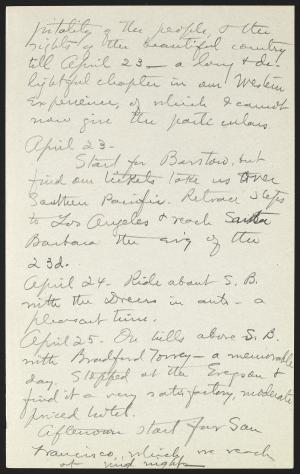 pitality of the people, & the
sights of the beautiful country
till April 23 — a long & de-
lightful chapter in our Western
Experience, of which I cannot
now give the particulars.
April 23 -
Start for Barstow, but
find our tickets take us over
Southern Pacific. Retrace steps
to Los Angeles & reach Santa
Barbara the evg of the
23d.
April 24 - Ride about S. B.
with the Dreers in auto - a
pleasant time.
April 25 - On hills above S. B.
with Bradford Torrey - a memorable
day. Stopped at the &
find it a very satisfactory, moderate
priced hotel.
Afternoon start for San
Francisco, which we reach
at mid night